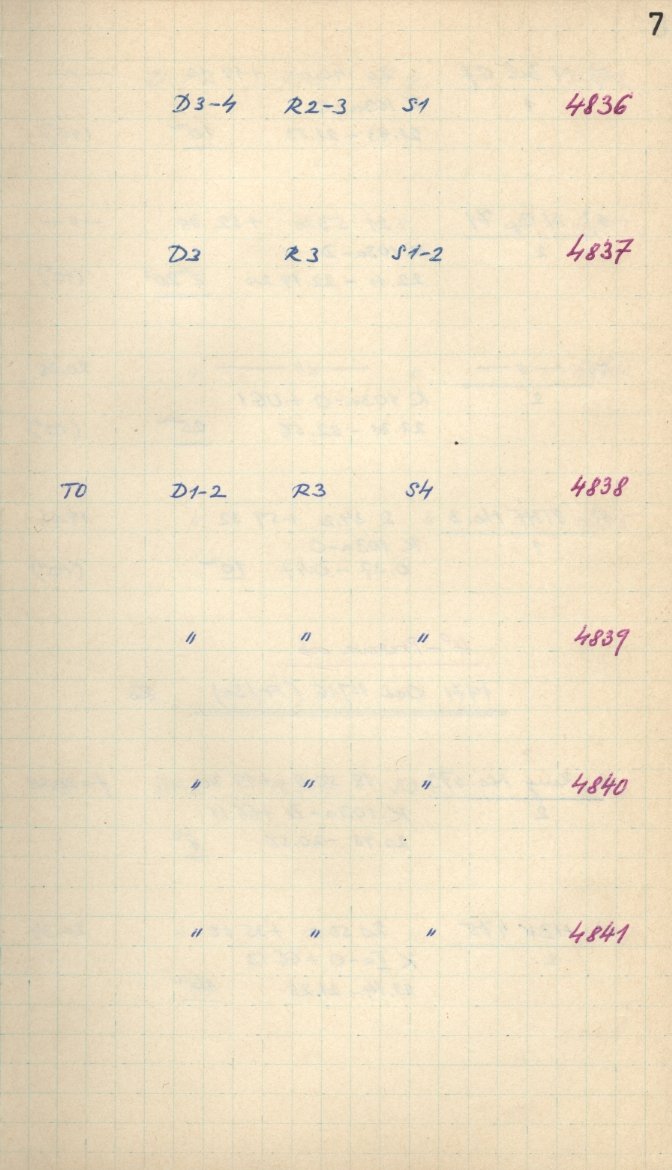 7
D3-4 R2-3 S1 4836
D3 R3 S1-2 4837
T0 D1-2 R3 S4 4838
" " " 4839
" " " 4840
" " " 4841